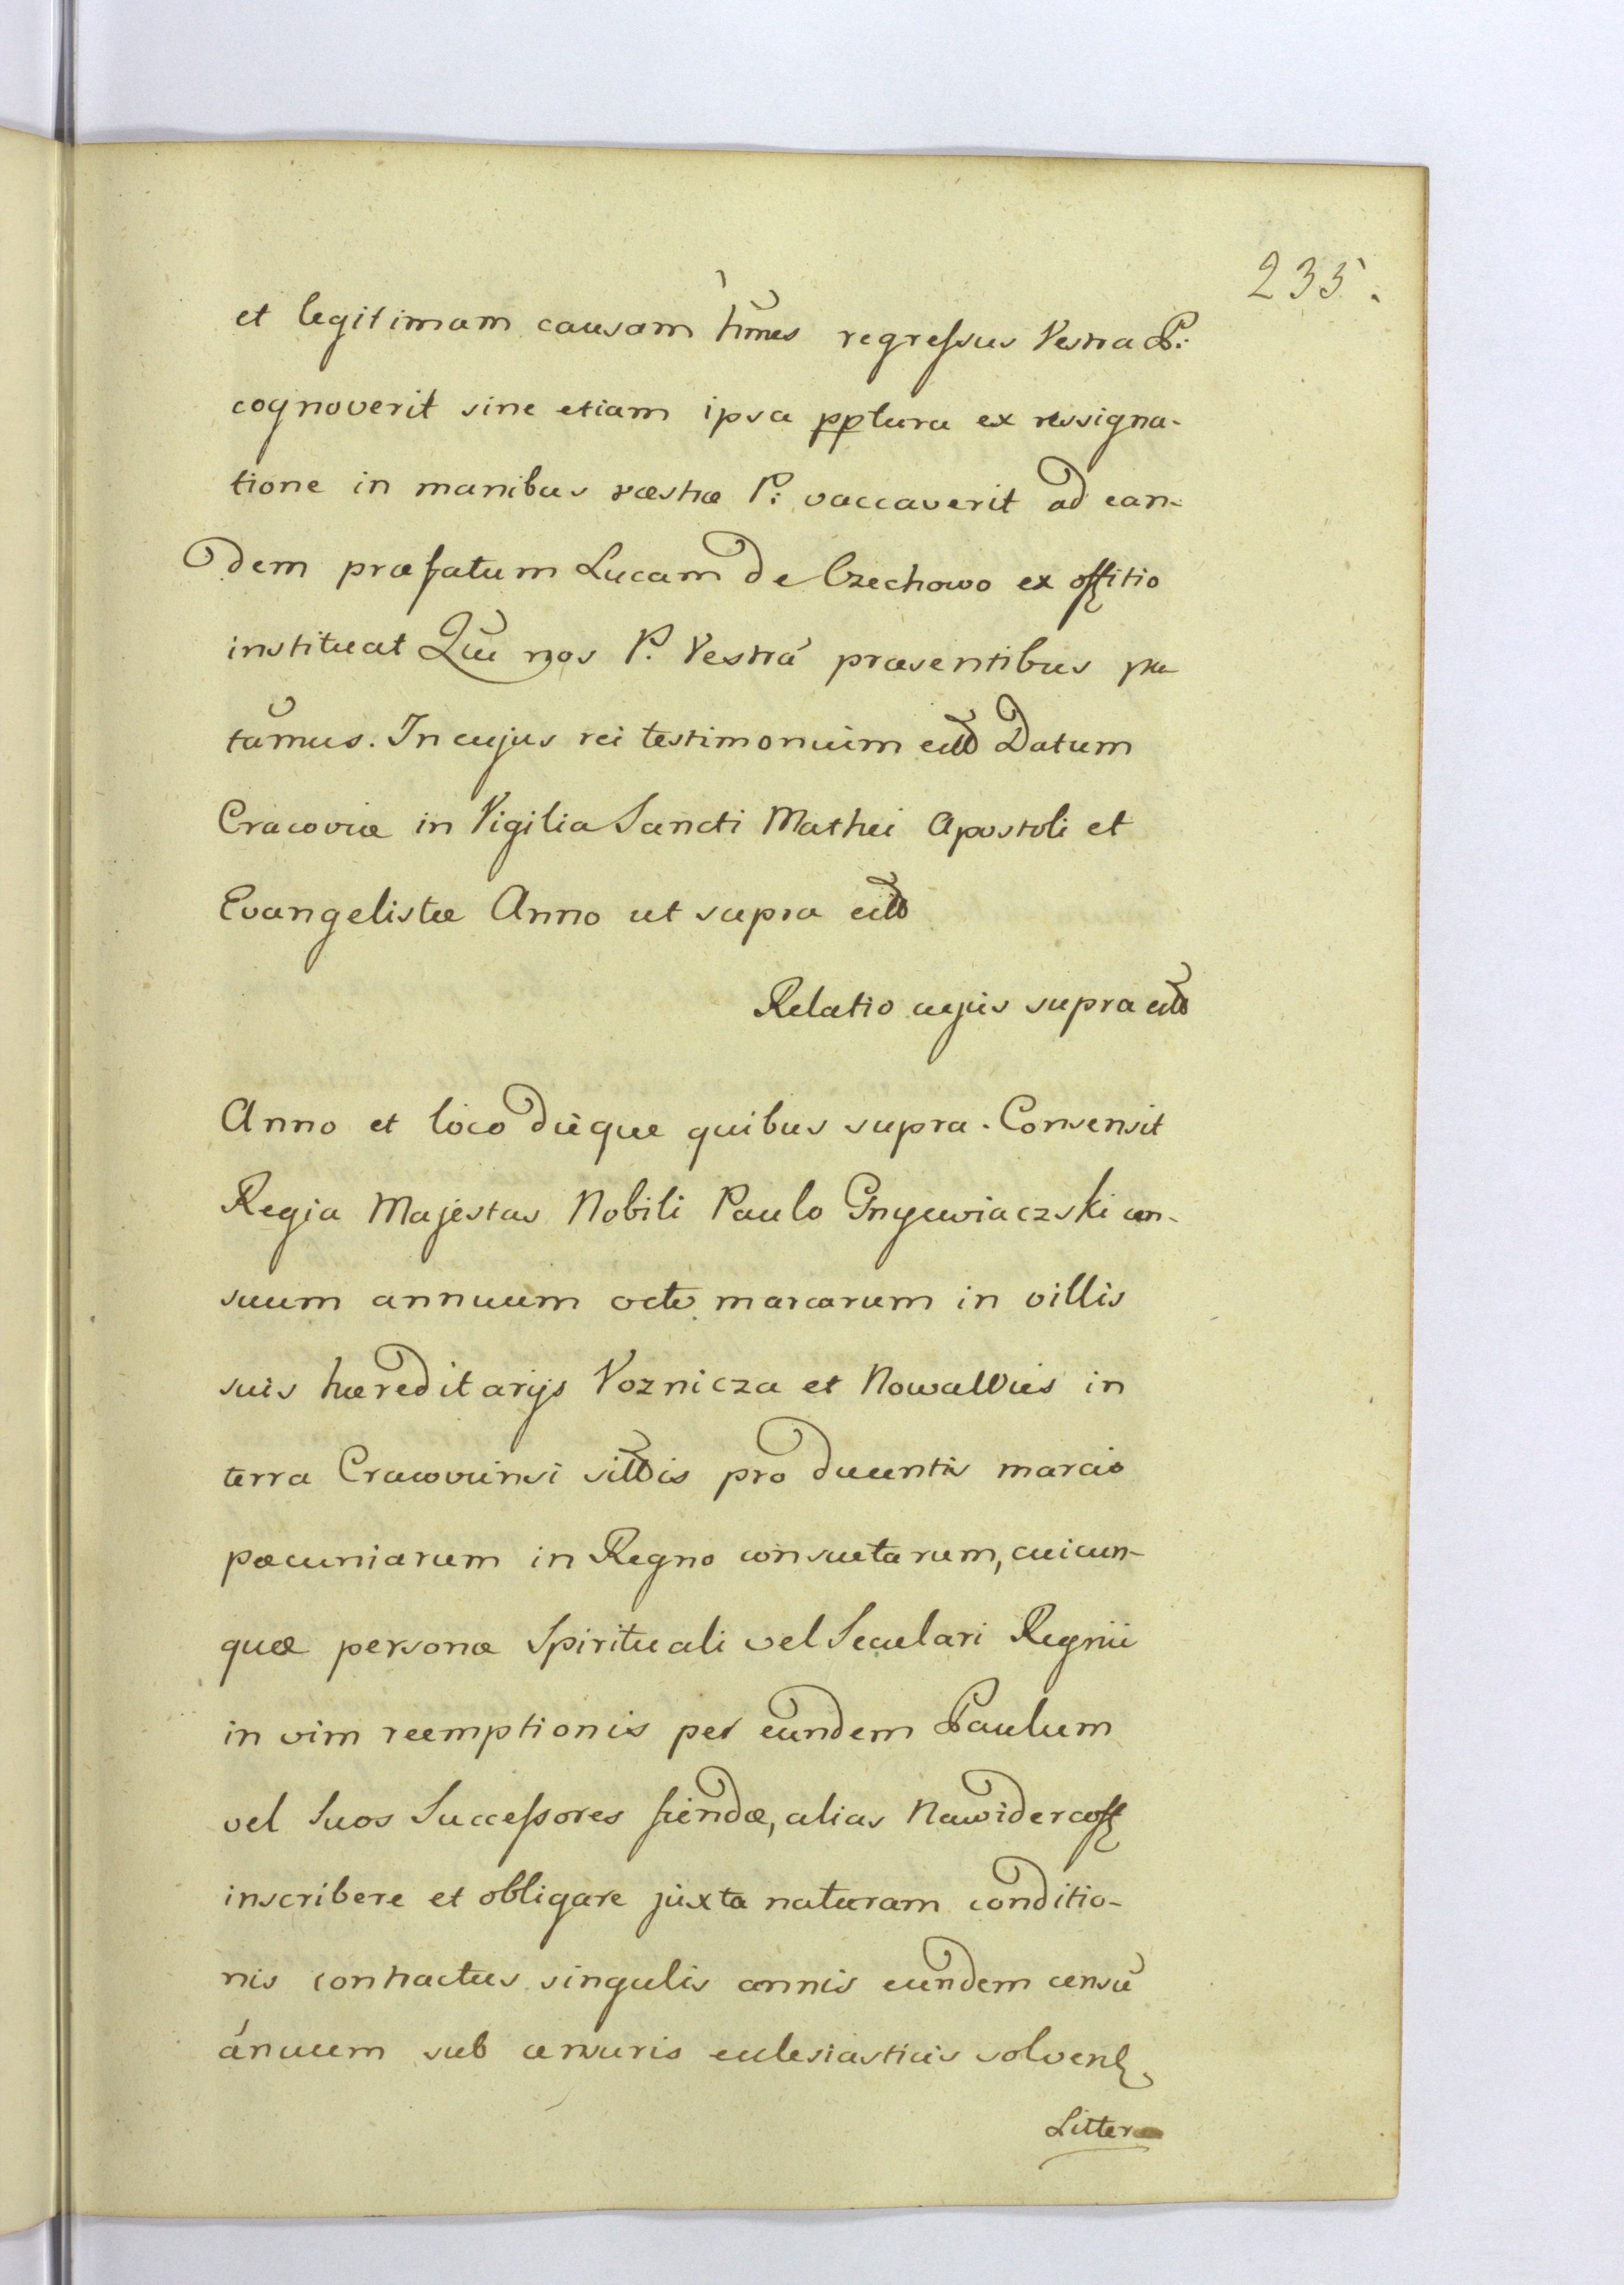 235.
et legitimam causam hmẽs regressus Vestra P.
cognoverit sine etiam ipsa pptura ex ressigna-
tione in manibus væstræ P: vaccaverit ad ean-
dem præfatum Lucam de Czechowo ex offitio
instituat Qũ nos P. Vestrá præsentibus
tãmus. In cujus rei testimonium Datum
Cracoviæ in Vigilia Sancti Mathei Apostoli et
Evangelistæ Anno ut supra
Relatio cujus supra
Anno et loco dieque quibus supra. Consensit
Regia Majestas Nobili Paulo Gnyewiaczski cen-
suum annuum octo marcarum in villis
suis hæreditarijs Voznicza et NowaWies in
terra Cracoviensi sitis pro ducentis marcis
pæcuniarum in Regno consuetarum, cuicun-
quæ personæ Spirituali vel Seculari Regnii
in vim reemptionis per eundem Paulum
vel Suos Successores fiendæ, alias Nawidercoff
inscribere et obligare juxta naturam conditio-
nis contractus singulis annis eundem censũ
ánuum sub censuris ecclesiasticis solvend
Litteræ